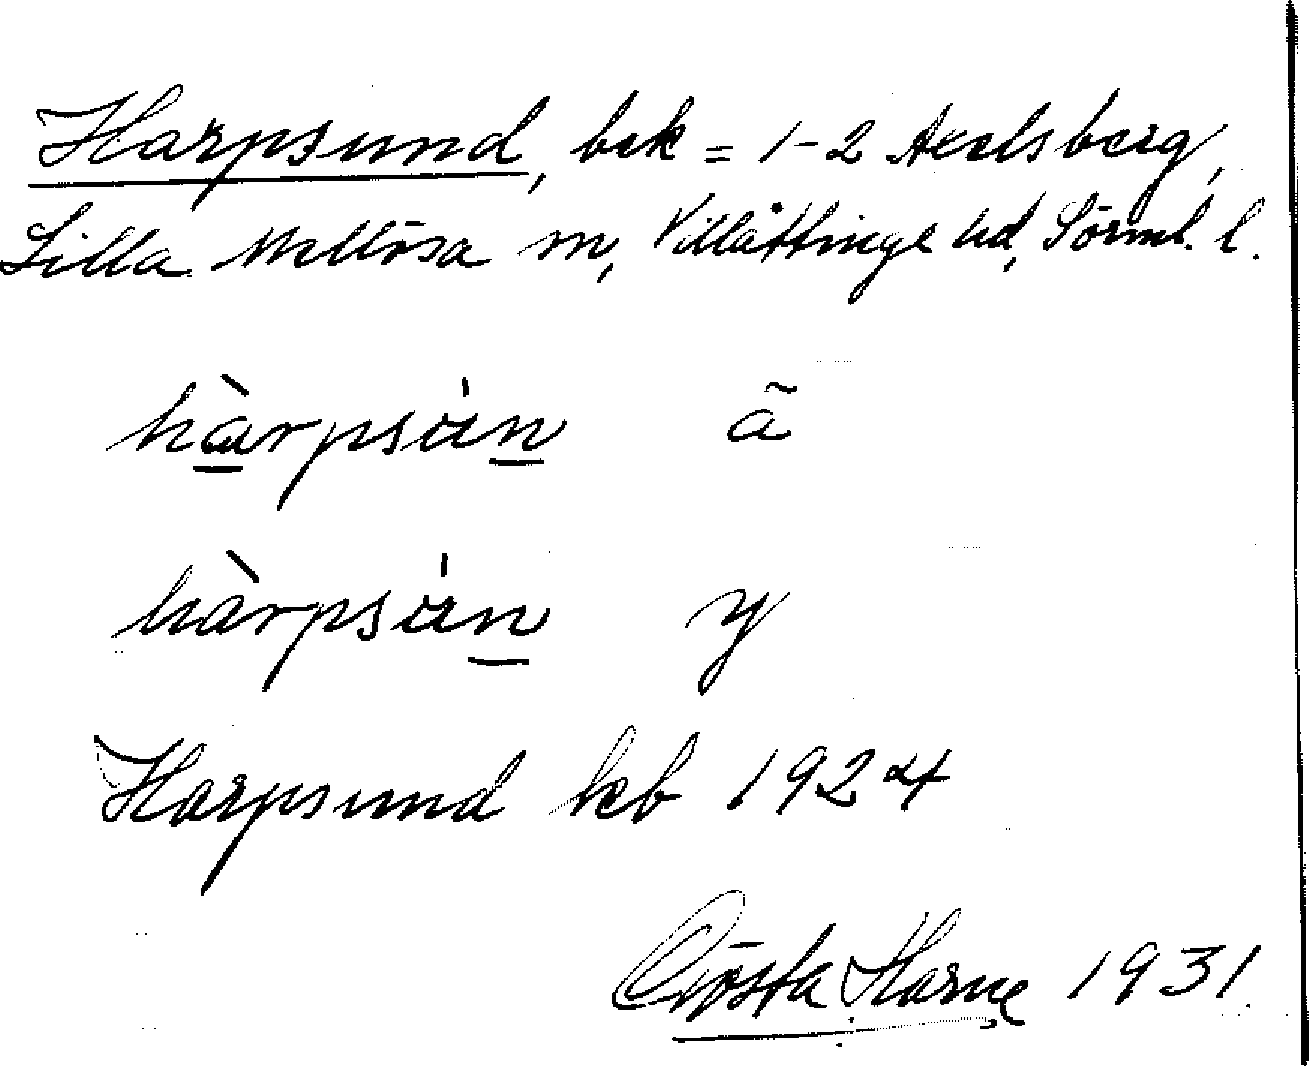 Harpsund, bek = 1-2 Axelsberg,
Lilla Mellösa sn, Villåttinge hd, Sörml. l.
hàrpsu̇n ã
hàrpsu̇n y
Harpsund kb 1924
Gösta Harne 1931